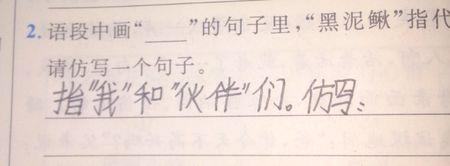 2.语段中画“___”的句子里,“黑泥鳅”指代
请仿写一个句子。
指"我"和"伙伴"们。仿写: